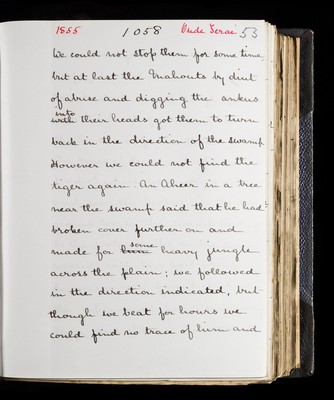 1855 1058 Oude Serai 53
We could not stop them for some time,
but at last the Mahouts by dint
of abuse and digging the ankus
into
with their heads got them to turn
back in the direction of the swamp.
However we could not find the
tiger again. An Aheer in a tree
near the swamp said that he had
broken cover further on and
some
made for heavy jungle
across the plain; we followed
in the direction indicated, but
though we beat for hours we
could find no trace of him and